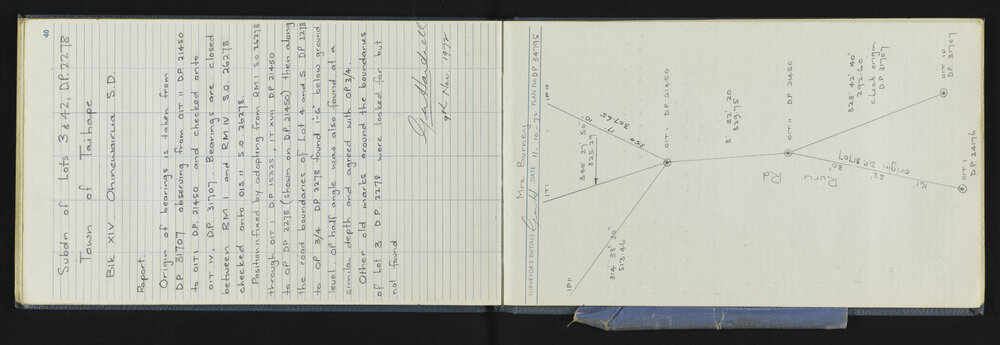 40
Subdn of Lots 3 & 42, D.P. 2278
Town of Taihape
Blk XIV. Ohinewairua S.D.
Report.
Origin of bearings is taken from
DP 31707 observing from OIT II D.P. 21450
to OIT I D.P. 21450 and checked onto
OIT IV. D.P. 31707. Bearings are closed
between RM I and RM IV S.O. 26278
checked onto OIS II S.O. 26278.
Position fixed by adopting from RM I S.O. 26278
through OIT I D.P. 15325, IT XVII DP 21450
to OP DP 2278 (shown on DP 21450) then along
the road boundaries of Lot 4 and 5 DP 2278
to OP 3/4 DP 2278 found 1'-6" below ground
level. OP half angle was also found at a
similar depth and agreed with OP 3/4.
Other old marks around the boundaries
of Lot 3 DP 2278 were looked for but
not found
9th Nov. 1972
SURVEYOR'S INITIALS DATE 11.10.72 PLAN No. DP 34795
Mrs Burney
IT I
IP II
344° 27' 50"
325.29
354° 17' 10"
307.65
314 33 30
513.46
OIT I D.P. 21450
3 32 20
329.75
OIT II D.P. 21450
328° 42' 40"
292.60
check origin
D.P. 31707
OIT IV
D.P. 31707
origin D.P. 31707
Rd
OIT I
D.P. 24176